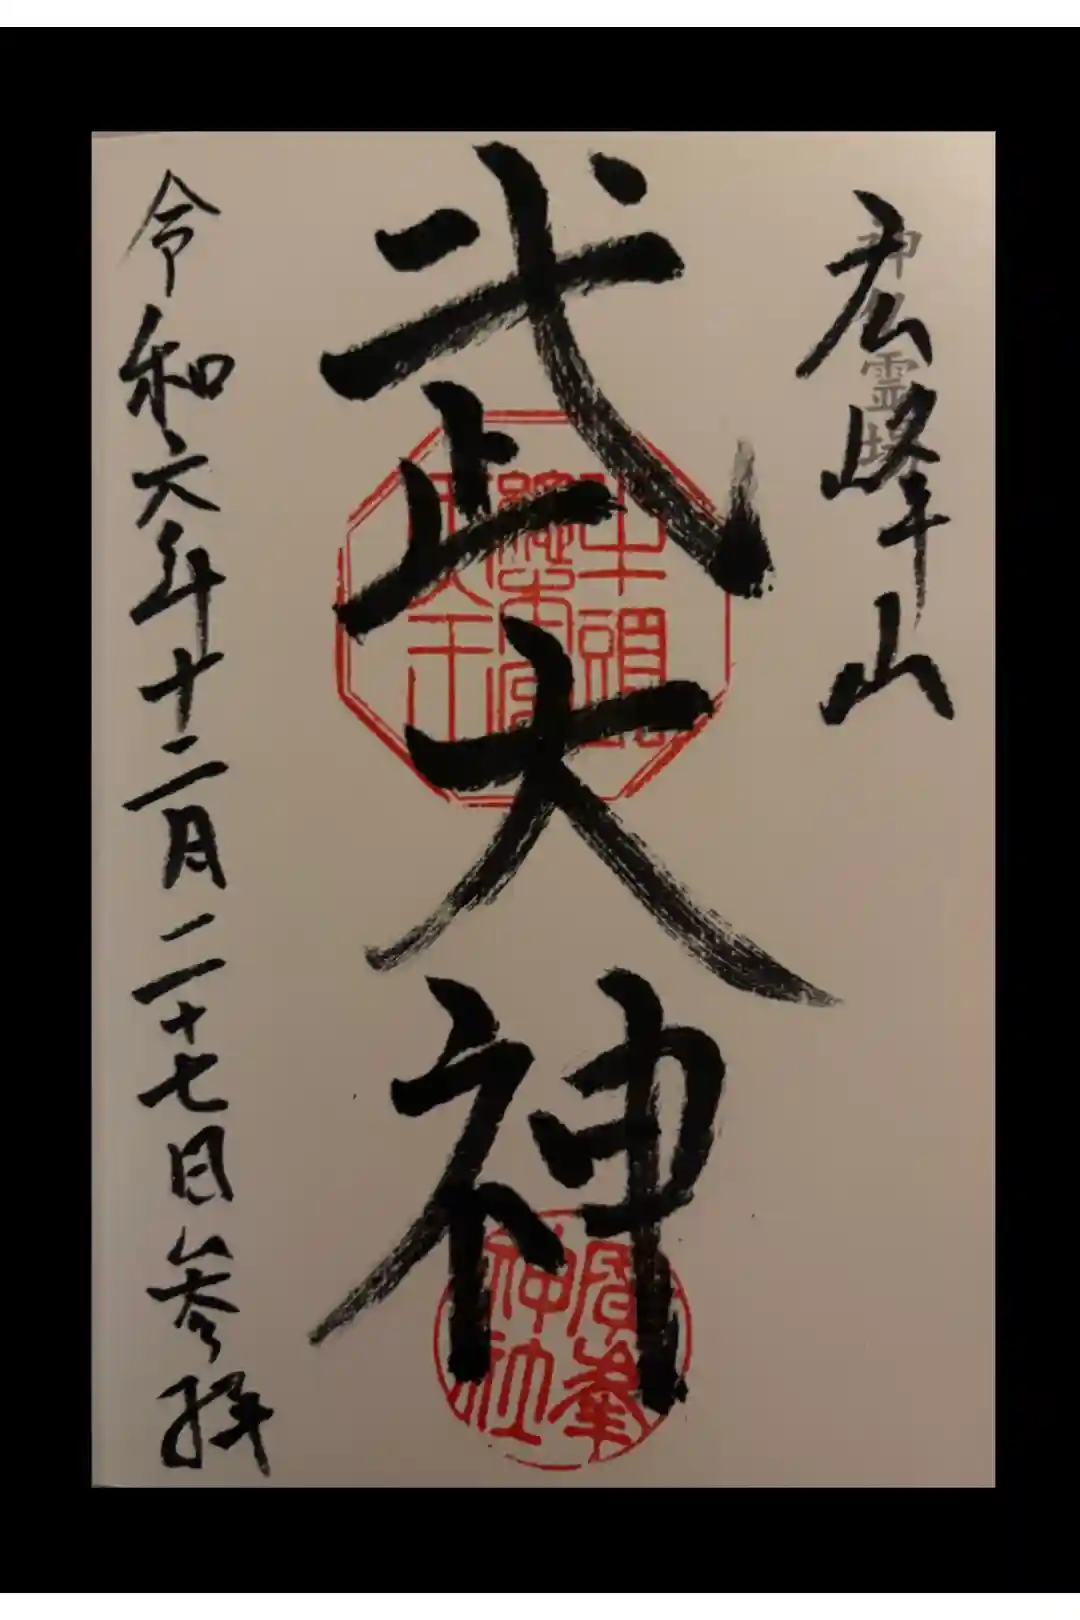 広峰山
神仏霊場
武大神
牛頭
総本宮
天王
廣峯
神社
令和六年十二月二十七日参拝